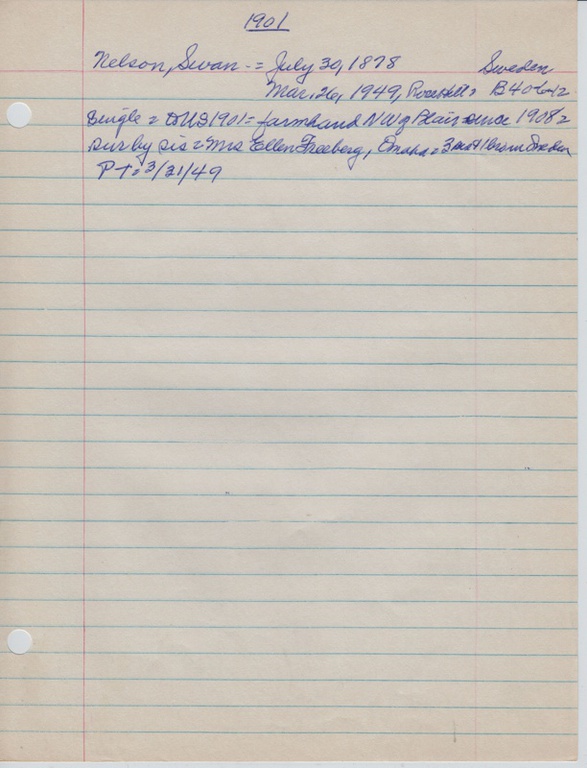 1901
Nelson, Swan - = July 30, 1878 Sweden
Mar. 26, 1949, Rose Hill = B40
single = 1901 = farmhand NW of Blair since 1908 =
sur by sis = Mrs Ellen Freeberg, Omaha = 3 Sweden
P-T = 3/31/49